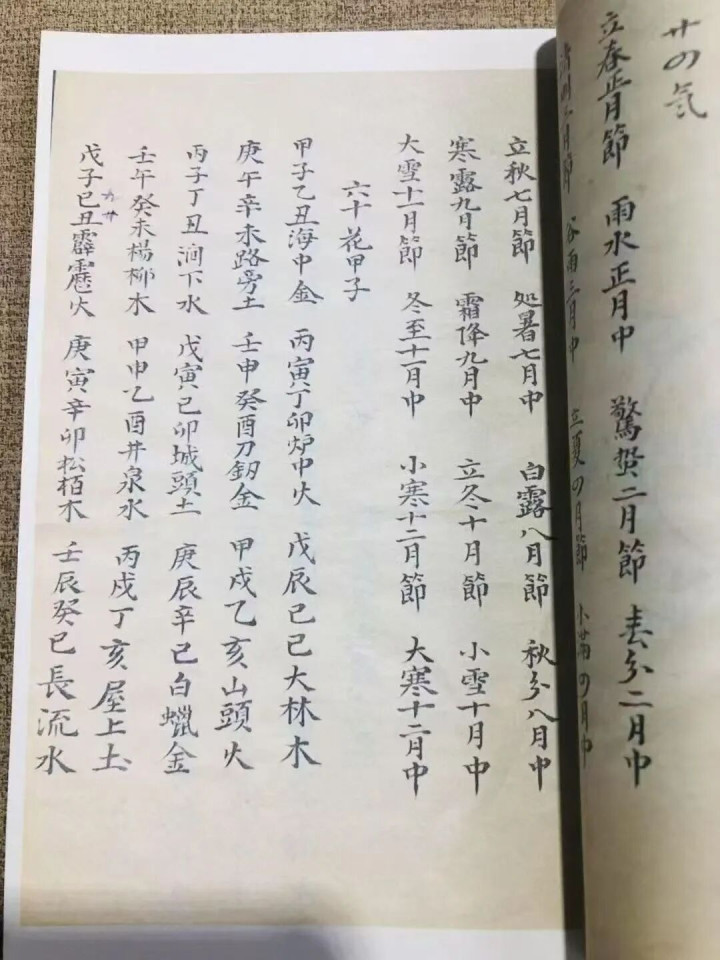 廿四気
立春正月節 雨水正月中 驚蟄二月節 春分二月中
清明三月節 谷雨三月中 立夏四月節 小满四月中
立秋七月節 処暑七月中 白露八月節 秋分八月中
寒露九月節 霜降九月中 立冬十月節 小雪十月中
大雪十一月節 冬至十一月中 小寒十二月節 大寒十二月中
六十花甲子
甲子乙丑海中金 丙寅丁卯炉中火 戊辰己巳大林木
庚午辛未路旁土 壬申癸酉刀釖金 甲戌乙亥山頭火
丙子丁丑涧下水 戊寅己卯城頭土 庚辰辛巳白蠟金
壬午癸未楊柳木 甲申乙酉井泉水 丙戌丁亥屋上土
戊子己丑霹靂火 庚寅辛卯松栢木 壬辰癸巳長流水